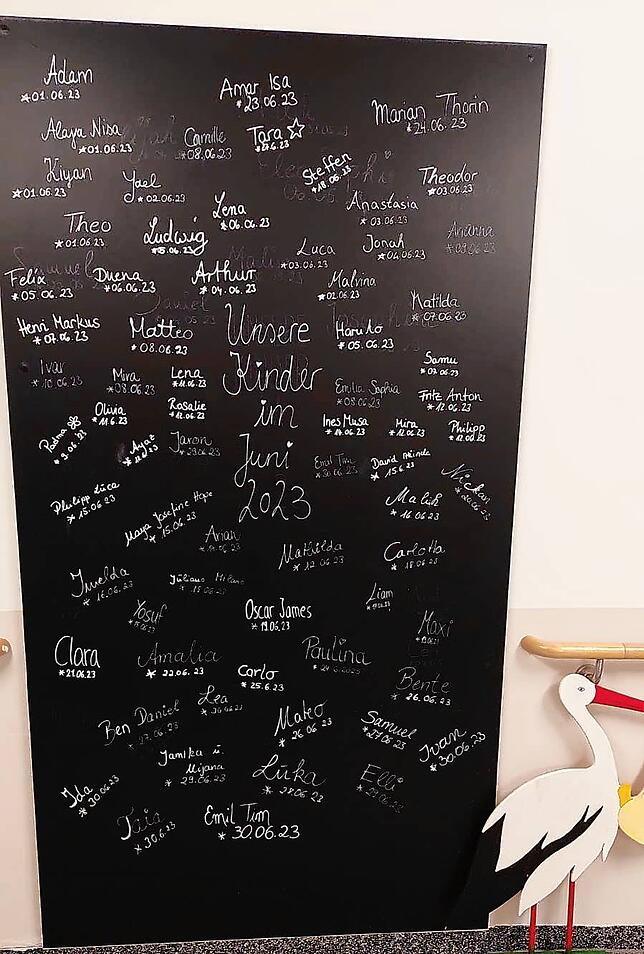 Adam
*01.06.23
Amar Isa
*23.06.23
Marian Thorin
*24.06.23
Alaya Nisa
*01.06.23
Camille
*08.06.23
Tara ☆
Steffen
*18.06.23
Kiyan
*01.06.23
Yael
*02.06.23
Theodor
*03.06.23
Lena
*06.06.23
Anastasia
*03.06.23
Theo
*01.06.23
Ludwig
Luca
*03.06.23
Jonah
*04.06.23
Arianna
*09.06.23
Felix
*05.06.23
Duena
*06.06.23
Arthur
*04.06.23
Malvina
*02.06.23
Matilda
*07.06.23
Henri Markus
*07.06.23
Matteo
*08.06.23
Haruto
*05.06.23
Unsere
Kinder
im
Juni
2023
Ivar
*10.06.23
Mira
*08.06.23
Lena
*11.06.23
Emilia Sophia
*08.06.23
Samu
*07.06.23
Fritz Anton
*12.06.23
Olivia
*11.6.23
Rosalie
*11.06.23
Ines Musa
*14.06.23
Mira
*12.06.23
Philipp
*12.06.23
*9.06.23
Ayaz
Jaron
*29.06.23
Emil Tim
*30.06.23
David
*15.6.23
Philipp Luca
*15.06.23
Maya Josefine Hope
*15.06.23
Malik
*16.06.23
Mathilda
*12.06.23
Carlotta
*18.06.23
Imelda
*16.06.23
Yosuf
Oscar James
*19.06.23
Liam
Maxi
Clara
*21.06.23
Amalia
*22.06.23
Paulina
Carlo
*25.6.23
Bente
*26.06.23
Lea
*26.06.23
Ben Daniel
*27.06.23
Mateo
*26.06.23
Samuel
*27.06.23
Ivan
*30.06.23
Jamika u.
Mijana
*29.06.23
Luka
*28.06.23
Elli
Ida
*30.06.23
*30.6.23
Emil Tim
*30.06.23